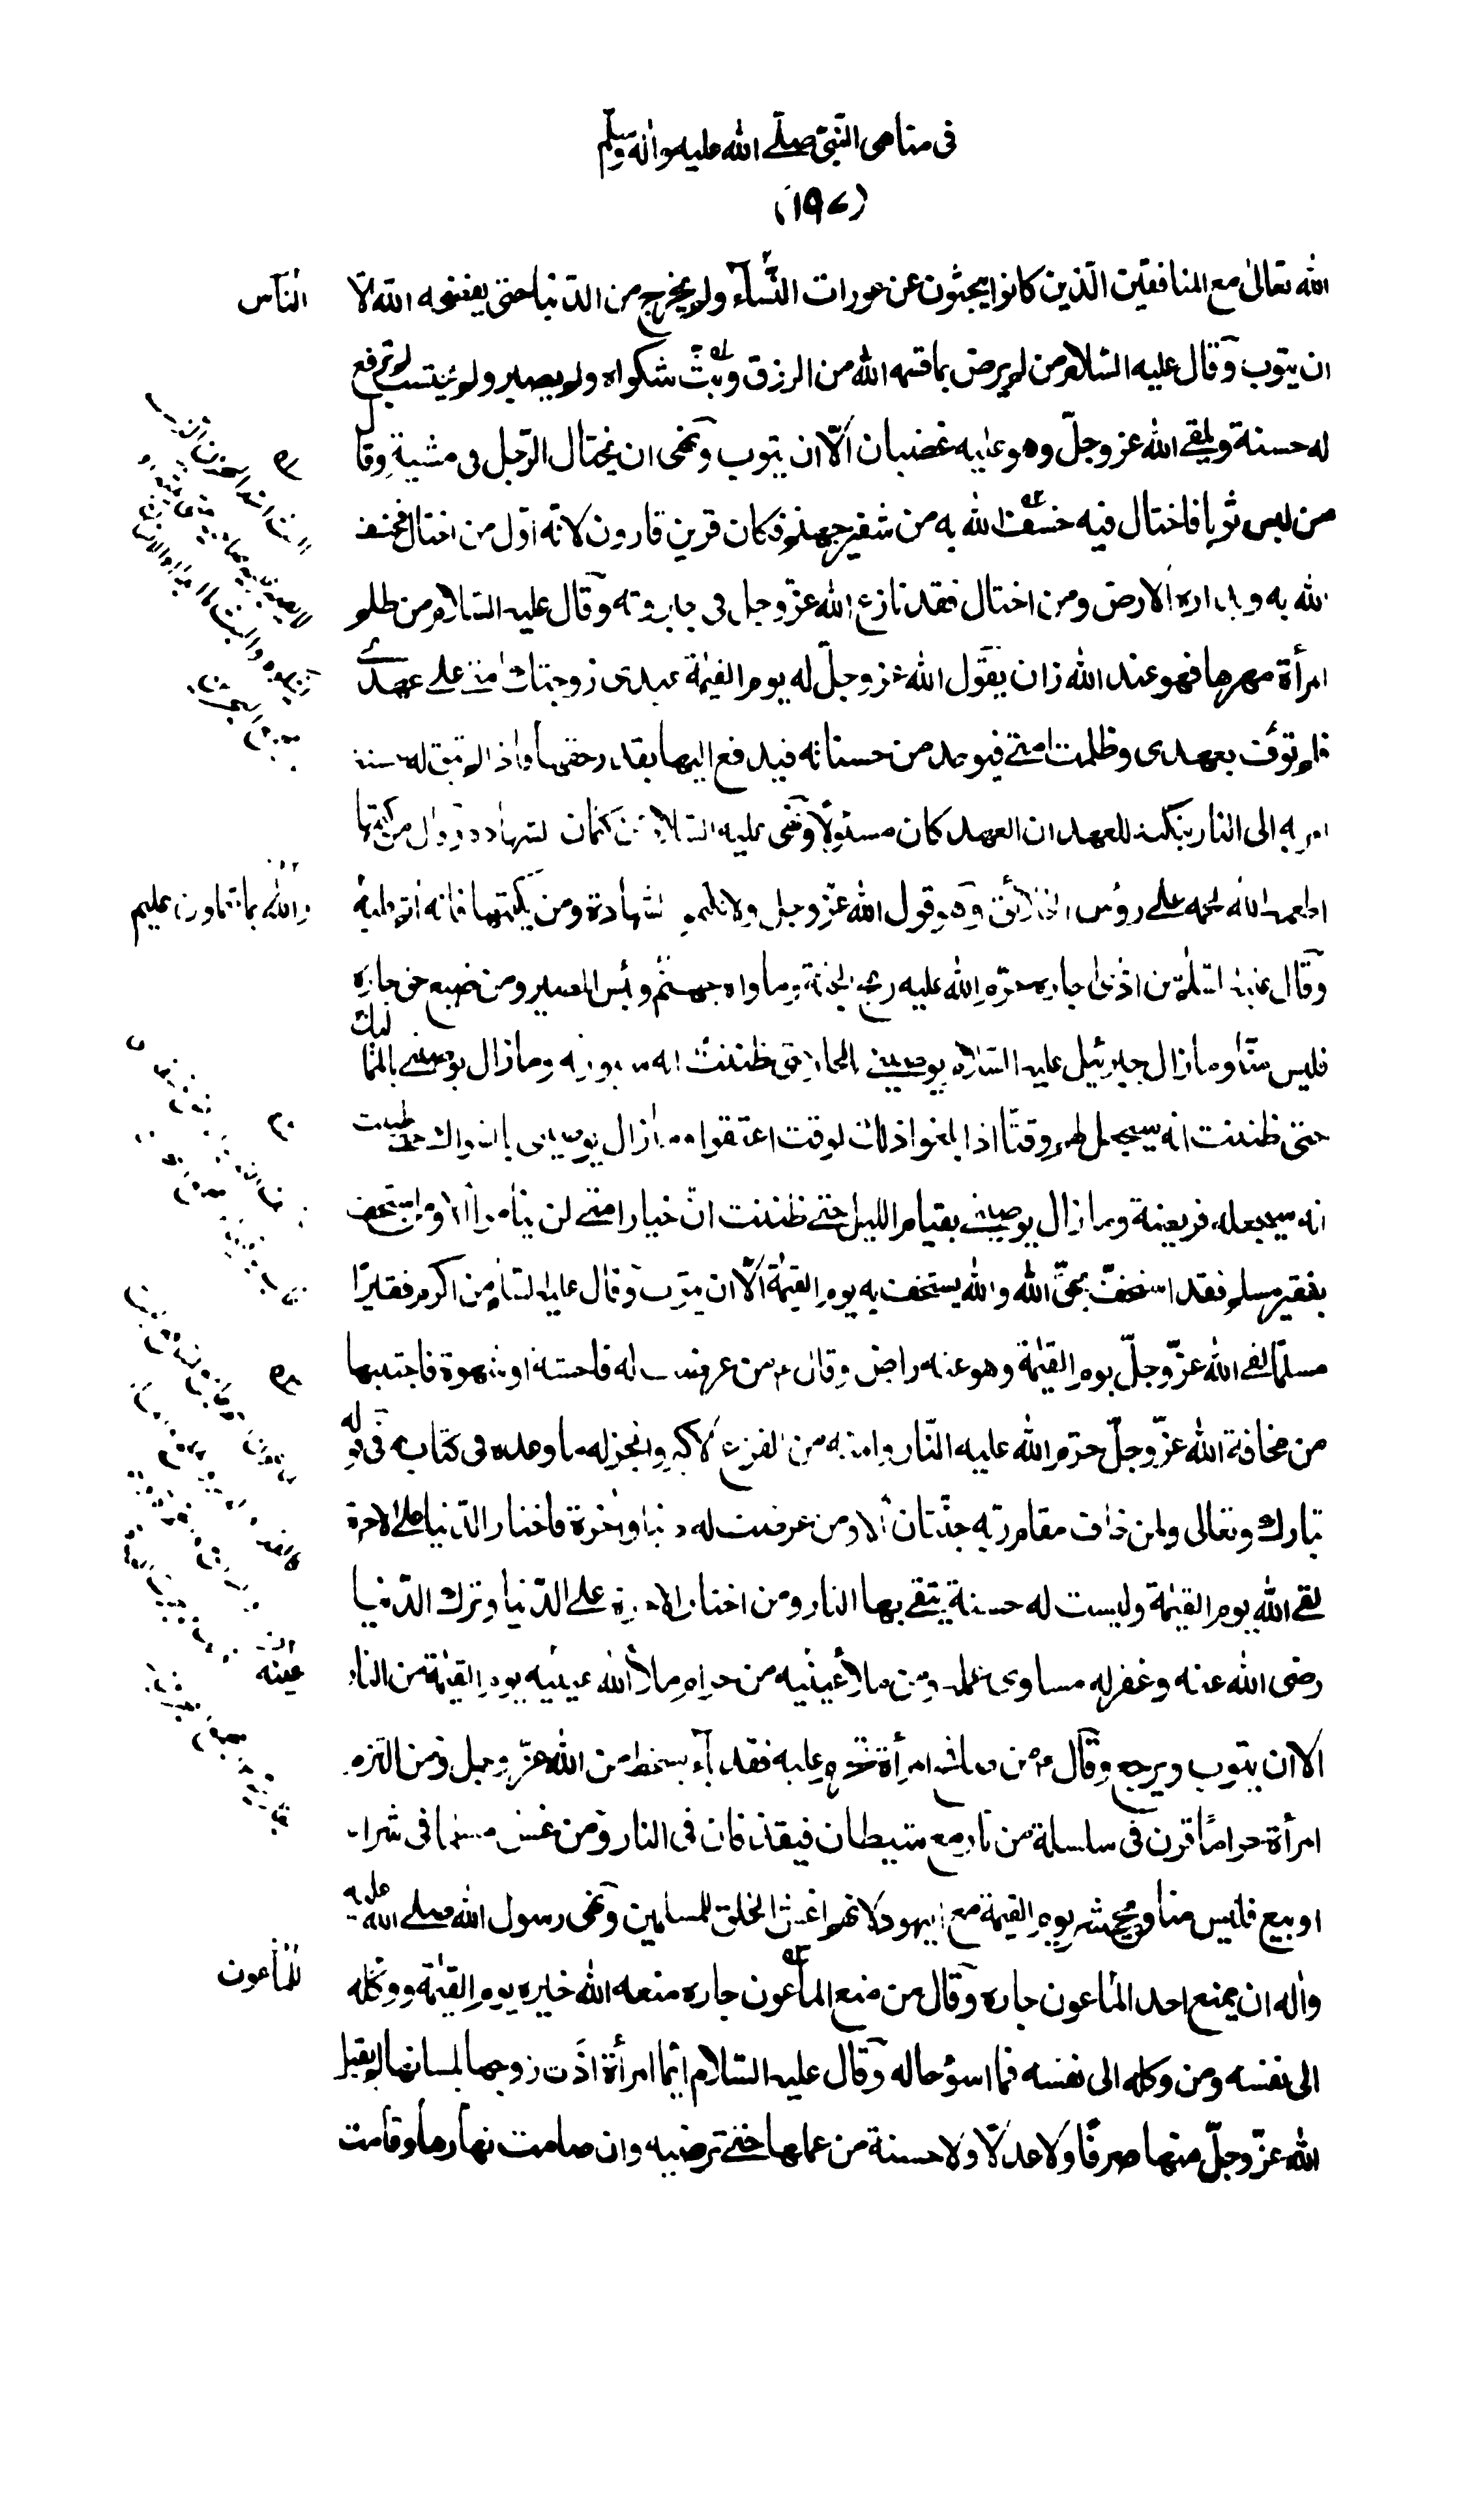 فى مناهى النّبىّ صلّى الله عليه واٰله وسلّم
(١٩٧)
الله تعالىٰ مع المنافقين الّذين كانوا يبحثون عن عورات النّسآء ولم يخرج من الدّنيا حتى يفضحه الله الّا
الناس
ان يتوب وقال عليه السّلام من لم يرض بما قسمه الله من الرزق وبثّ شكواه ولم يصبر ولم يحتسب لم ترفع
له حسنة ويلقى الله عزوجلّ وهو عليه غضبان الّا ان يتوب ونهى ان يختال الرّجل فى مشيه وقال
من لبس ثوبا فاختال فيه خسف الله به من شفير جهنم وكان قرين قارون لانّه اوّل من اختال فخسف
الله به وبداره الارض ومن اختال فقد نازع الله عزّوجل فى جبروته وقال عليه السّلام من ظلم
امرأة مهرها فهو عند الله زان يقول الله عزوجلّ له يوم القيٰمة عبدى زوجتك امتى على عهدى
فلم توف بعهدى وظلمت امتى فيوخذ من حسناته فيدفع اليها بقدر حقها فاذا لم تبق له حسنة
امر به الى النار بنكثه للعهد ان العهد كان مسئولًا ونهى عليه السّلام عن كتمان الشهادة وقال من كتمها
اطعمه الله لحمه على رؤس الخلائق وهو قول الله عزّوجل ولا تكتموا الشهادة ومن يكتمها فانه اٰثم قلبه
والله بما تعملون عليم
وقال عليه السّلام من اٰذىٰ جاره حرّم الله عليه ريح الجنة وماواه جهنّم وبئس المصير ومن ضيع حق جاره
فليس منّا وما زال جبرئيل عليه السّلام يوصينى بالجار حتى ظننت انه سيورثه وما زال يوصينى بالمماليك
حتى ظننت انه سيجعل لهم وقتًا اذا بلغوا ذلك الوقت اعتقوا وما زال يوصينى بالسواك حتى ظننت
انه سيجعله فريضة وما زال يوصينى بقيام الليل حتى ظننت انّ خيار امتى لن يناموا الا ومن استخف
بفقير مسلم فقد استخفّ بحقّ الله والله يستخف به يوم القيٰمة الّا ان يتوب وقال عليه السّلام من اكرم فقيرًا
مسلمًا لقى الله عزّوجلّ يوم القيٰمة وهو عنه راض وقال ع من عرضت له فاحشة او شهوة فاجتنبها
من مخافة الله عزّوجلّ حرّم الله عليه النّار واٰمنه من الفزع الاكبر وانجز له ما وعده فى كتابه فى قوله
تبارك وتعالى ولمن خاف مقام ربّه جنّتان ألا ومن عرضت له دنيا واٰخرة فاختار الدّنيا على الاخرة
لقى الله يوم القيٰمة وليست له حسنة يتقى بها النار ومن اختار الاخرة على الدّنيا وترك الدّنيا
رضى الله عنه وغفر له مساوى عمله ومن ملأ عينيه من حرام ملأ الله عينيه يوم القيٰمة من النار
عينه
الا ان يتوب ويرجع وقال ع من صافح امرأة تحرم عليه فقد باء بسخط من الله عزّوجل ومن التزم
امرأة حرامًا قرن فى سلسلة من نار مع شيطان فيقذفان فى النار ومن غش مسلما فى شراء
او بيع فليس منا ويحشر يوم القيٰمة مع اليهود لانهم اغش الخلق للمسلمين ونهى رسول الله صلى الله عليه
واٰله ان يمنع احد الماعون جاره وقال من منع الماعون جاره منعه الله خيره يوم القيٰمة ووكله
للماعون
الى نفسه ومن وكله الى نفسه فما اسوء حاله وقال عليه السّلام ايّما امرأة اٰذت زوجها بلسانها لم يقبل
الله عزّوجلّ منها صرفًا ولا عدلًا ولا حسنة من عملها حتى ترضيه وان صامت نهارها وقامت